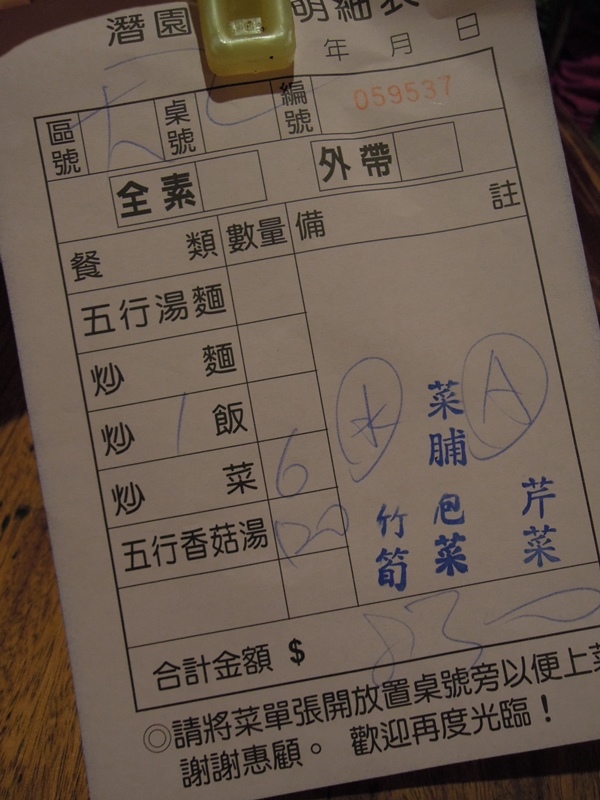 潛園 明細表
年 月 日
區號 桌號 編號 059537
全素 外帶
餐類 數量 備註
五行湯麵
炒麵
炒飯
炒菜 6
五行香菇湯 120
水 A
菜脯
竹筍 包菜 芹菜
合計金額 $
◎請將菜單張開放置桌號旁以便上菜
謝謝惠顧。 歡迎再度光臨!